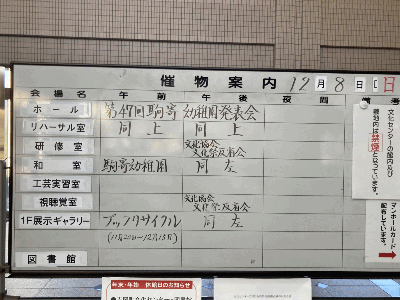 催物案内 12月8日(日)
会場名 午前 午後 夜間 備考
ホール 第47回駒寄幼稚園発表会
リハーサル室 同上 同上
研修室 文化協会
文化祭反省会
和室 駒寄幼稚園 同左
工芸実習室
視聴覚室 文化協会
文化祭反省会
1F展示ギャラリー ブックリサイクル 同左
(11月20日〜12月15日)
図書館
文化センターの館内及び
敷地内は禁煙となっています。
マンホールカード
配布しています。
年末・年始 休館日のお知らせ